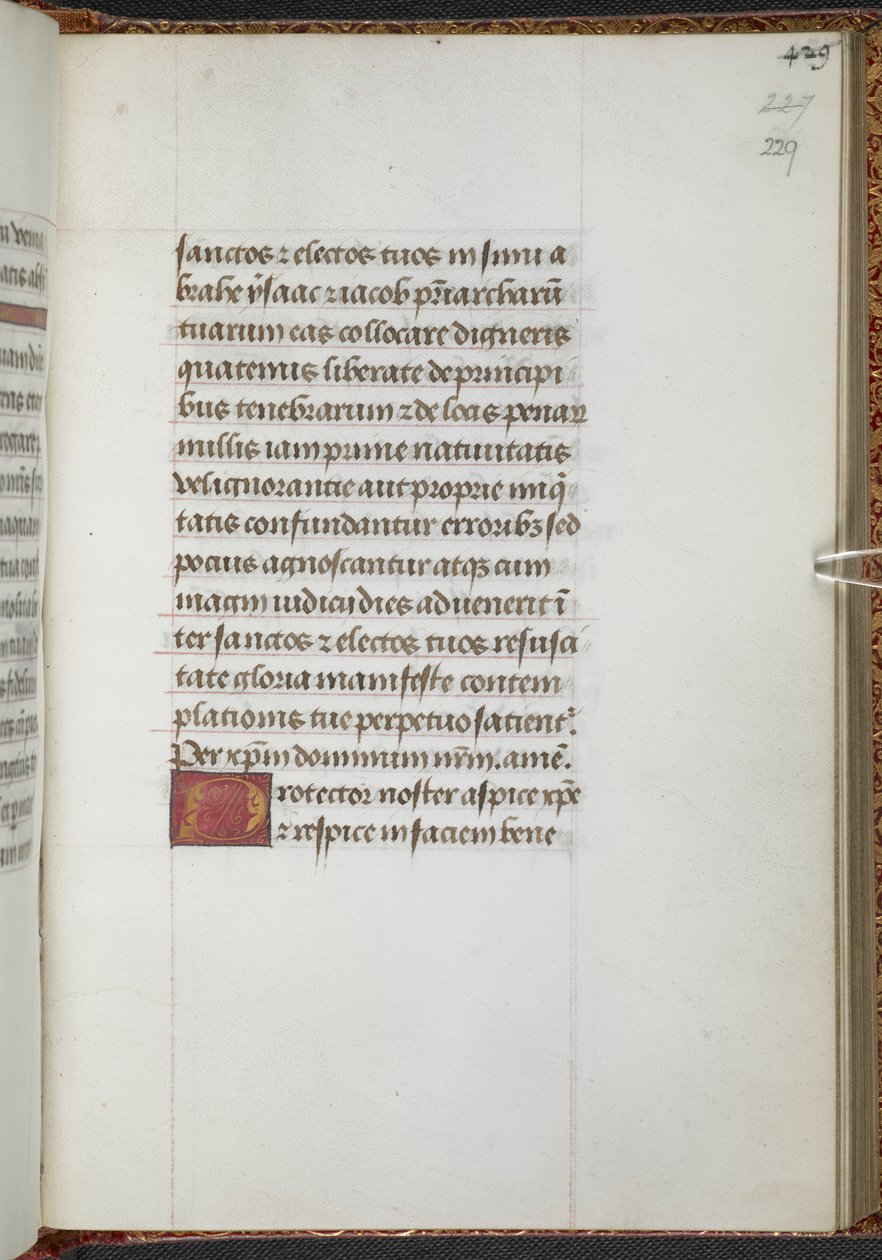 429
227
229
sanctos ⁊ electos tuos in sinu a
brahe ẏsaac ⁊ iacob pr̄iarcharū
tuarum eas collocare digneris
quatemis liberate de principi
bus tenebrarum ⁊ de locis penaꝝ
nullis iam prime natiuitatis
vel ignorantie aut proprie iniq̄
tatis confundantur erroribꝫ sed
pocius agnoscantur atqꝫ cum
magni iudicij dies aduenerit ī
ter sanctos ⁊ electos tuos resusci
tate gloria manifeste contem
plationis tue perpetuo satient᷑.
Per xp̄m dominum nr̄m. amē.
Protector noster aspice xp̄e
⁊ respice in faciem bene